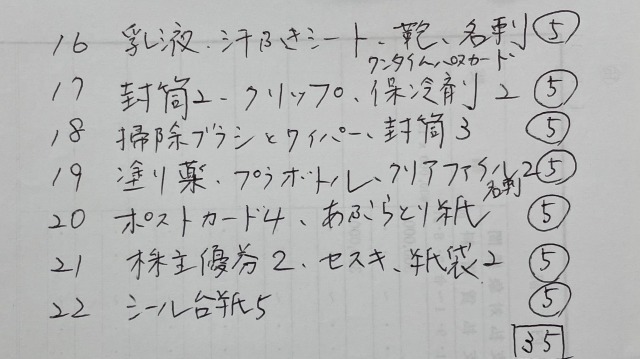 16 乳液、汗ふきシート、鞄、名刺 ⑤
ワンタイムパスカード
17 封筒2、クリップ、保冷剤2 ⑤
18 掃除ブラシとワイパー、封筒3 ⑤
19 塗り薬、プラボトル、クリアファイル2 ⑤
名刺
20 ポストカード4、あぶらとり紙 ⑤
21 株主優券2、セスキ、紙袋2 ⑤
22 シール台紙5 ⑤
35